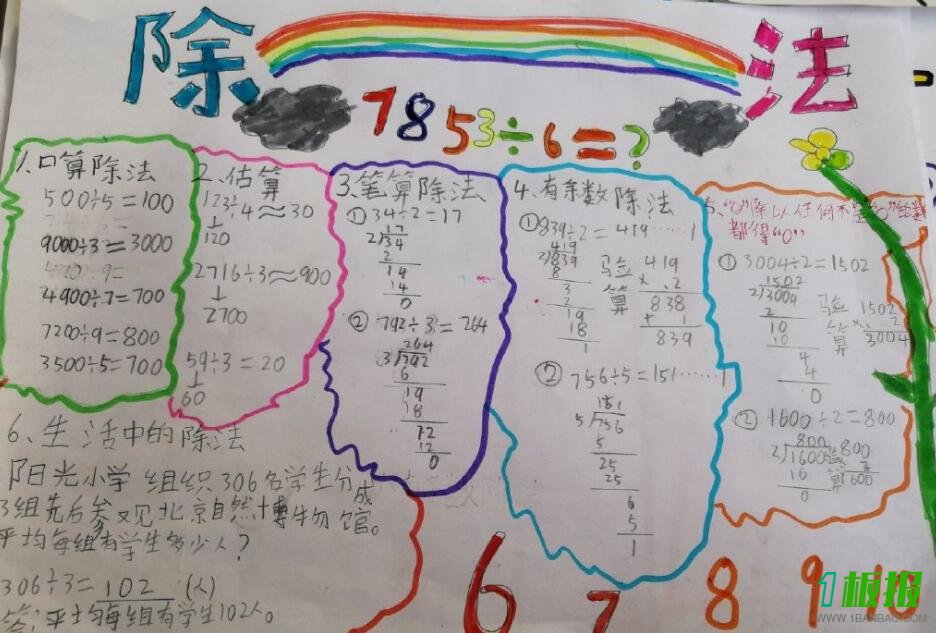 除法
7853÷6=?
1、口算除法
500÷5=100
9000÷3=3000
4900÷7=700
7200÷9=800
3500÷5=700
2、估算
123÷4≈30
↓
120
2716÷3≈900
↓
2700
59÷3=20
↓
60
3、笔算除法
①34÷2=17
17
2√34
2
14
14
0
②792÷3=264
264
3√792
6
19
18
72
12
0
4、有余数除法
①839÷2=419……1
419
2√839
8
3
2
19
18
1
验算
419
×2
838
+1
839
②756÷5=151……1
151
5√756
5
25
25
6
5
1
5、"0"除以任何不是"0"的数
都得"0"
①3004÷2=1502
1502
2√3004
2
10
10
4
4
0
验算
1502
×2
3004
②1600÷2=800
800
2√1600
16
0
验算
800
2
1600
6、生活中的除法
阳光小学组织306名学生分成
3组先后参观北京自然博物馆。
平均每组有学生多少人?
306÷3=102(人)
答:平均每组有学生102人。
6 7 8 9 10
1板报
WWW.1BANBAO.COM